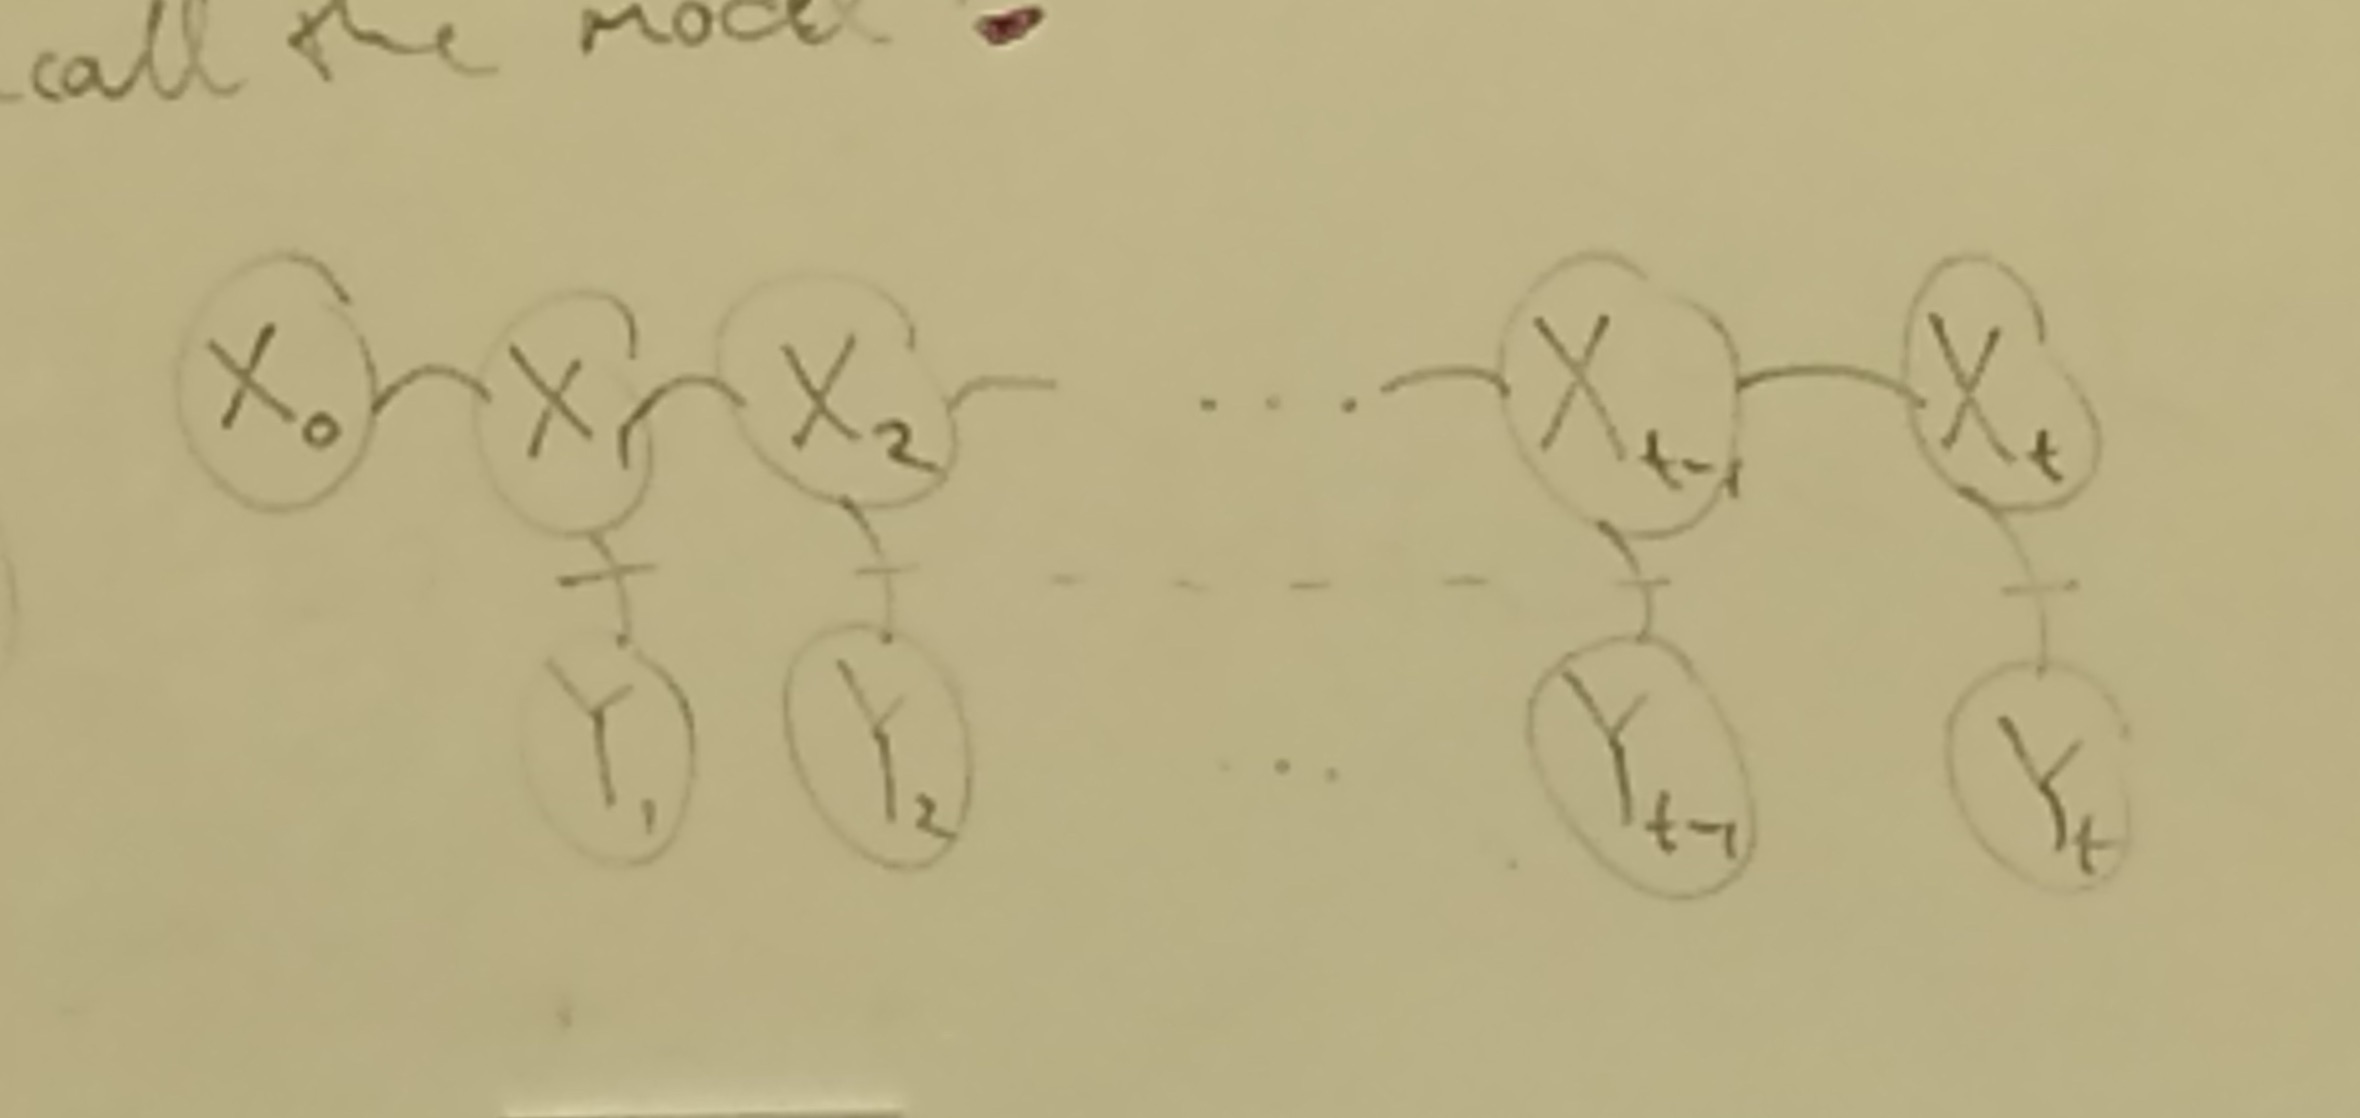 call the model
X₀ X₁ X₂ ... Xₜ₋₁ Xₜ
Y₁ Y₂ ... Yₜ₋₁ Yₜ